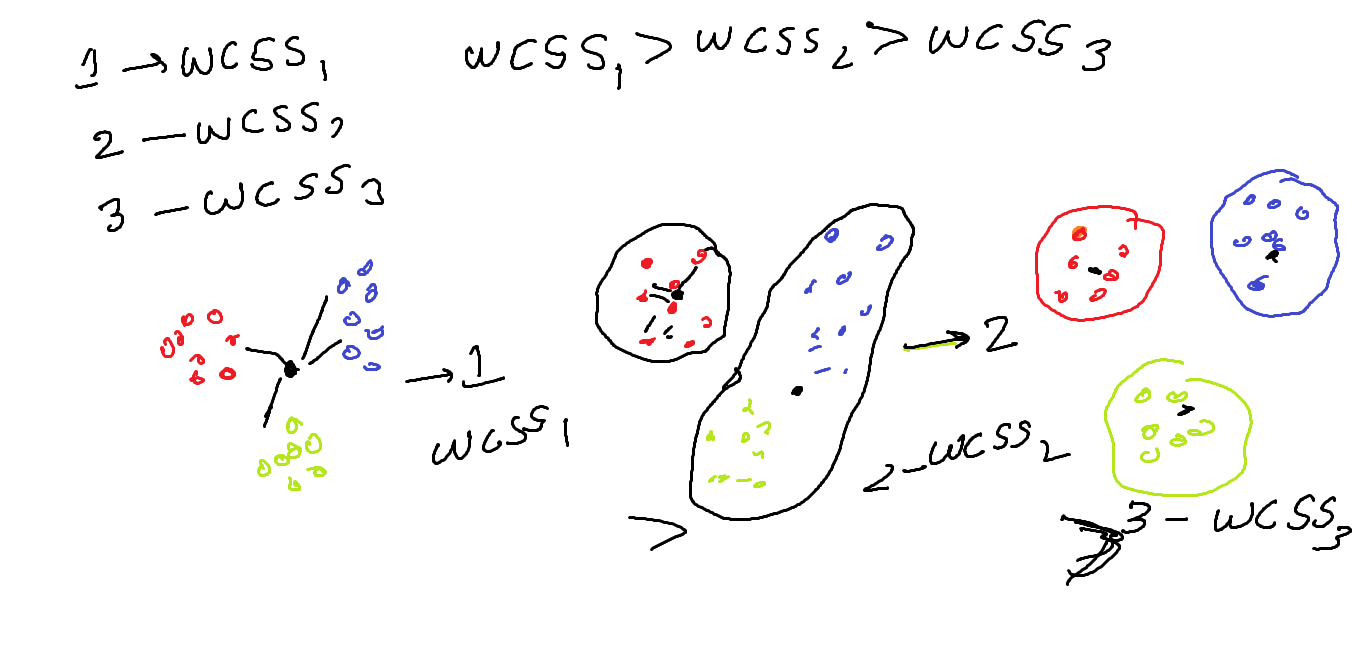 1 → WCSS1
WCSS1 > WCSS2 > WCSS3
2 — WCSS2
3 — WCSS3
→ 1
WCSS1
→ 2
>
2 - WCSS2
> 3 - WCSS3